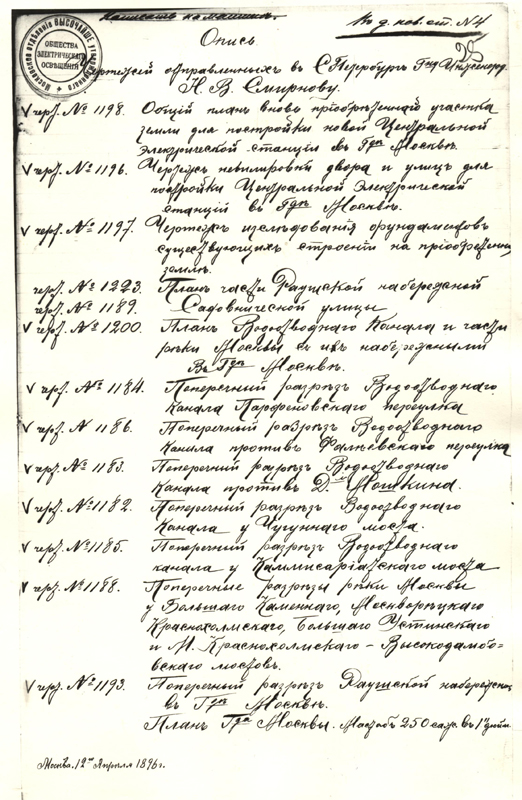 Написать на машинке.
къ д. нов. ст. №4
28
Опись
Московское отдѣленіе ВЫСОЧАЙШЕ утвержденнаго
ОБЩЕСТВА ЭЛЕКТРИЧЕСКАГО ОСВѢЩЕНІЯ
Чертежей отправленныхъ въ С.Петербургъ Гну Инженеру
Н. В. Смирнову.
V черт. № 1198. Общій планъ вновь пріобрѣтенной участка
земли для постройки новой Центральной
Электрической станціи въ Гдѣ Москвѣ.
V черт. № 1196. Чертежъ невилировки двора и улицъ для
постройки Центральной Электрической
станціи въ Гдѣ Москвѣ.
V черт. № 1197. Чертежъ изслѣдованія фундаментовъ
существующихъ строеній на пріобрѣтенной
землѣ.
черт. № 1223. Планъ части Раушской набережной
черт. № 1189. Садовнической улицы
V черт. № 1200. Планъ Водоотводнаго Канала и части
рѣки Москвы съ ихъ набережными
Въ Гдѣ Москвѣ.
V черт. № 1184. Поперечный разрѣзъ Водоотводнаго
Канала Парфеновскаго переулка
V черт. № 1186. Поперечный разрѣзъ Водоотводнаго
Канала противъ Фалѣевскаго переулка
V черт. № 1183. Поперечный разрѣзъ Водоотводнаго
Канала противъ Д. Мошкина.
V черт. № 1182. Поперечный разрѣзъ Водоотводнаго
Канала у Чугуннаго моста.
V черт. № 1185. Поперечный разрѣзъ Водоотводнаго
канала у Коммисаріатскаго моста
V черт. № 1188. Поперечные разрѣзы рѣки Москвы
у Большаго Каменнаго, Москворѣцкаго
Краснохолмскаго, Большаго Устинскаго
и М. Краснохолмскаго – Высокодамбо=
вскаго мостовъ.
V черт. № 1193. Поперечный разрѣзъ Раушской набережной
въ Гдѣ Москвѣ.
Планъ Гда Москвы. Масштабъ 250 саж. въ 1" дюйм.
Москва. 12го Апрѣля 1896 г.